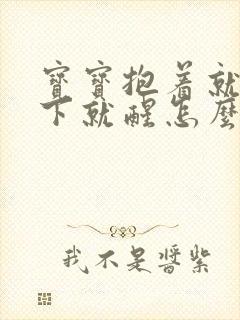 寶寶抱着就
下就醒怎麼
我不是醬紫